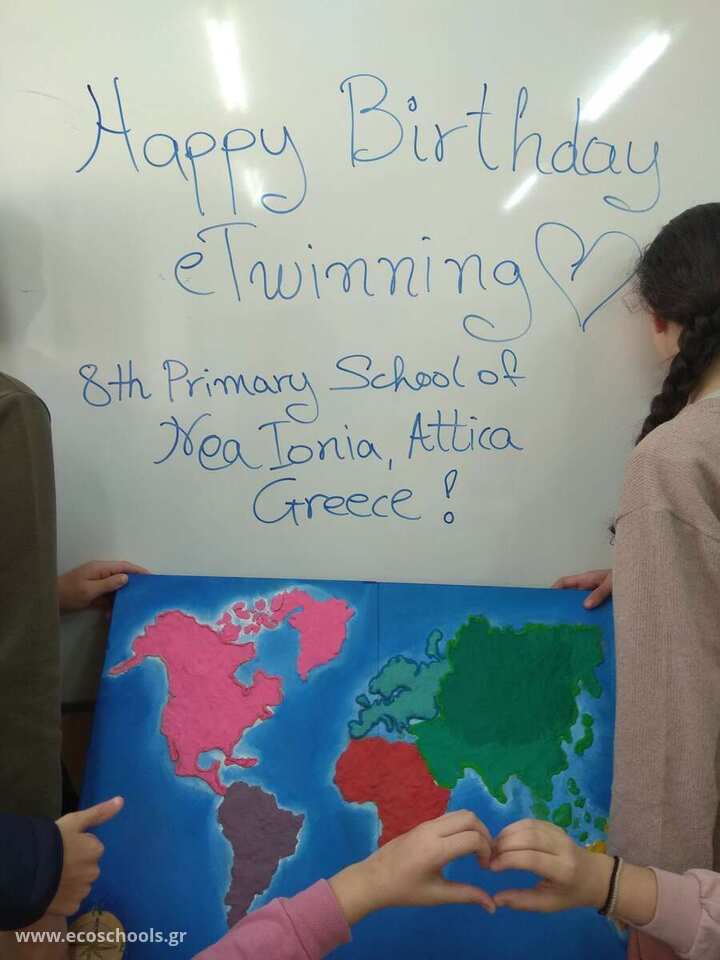 Happy Birthday
eTwinning
8th Primary School of
Nea Ionia, Attica
Greece!
www.ecoschools.gr